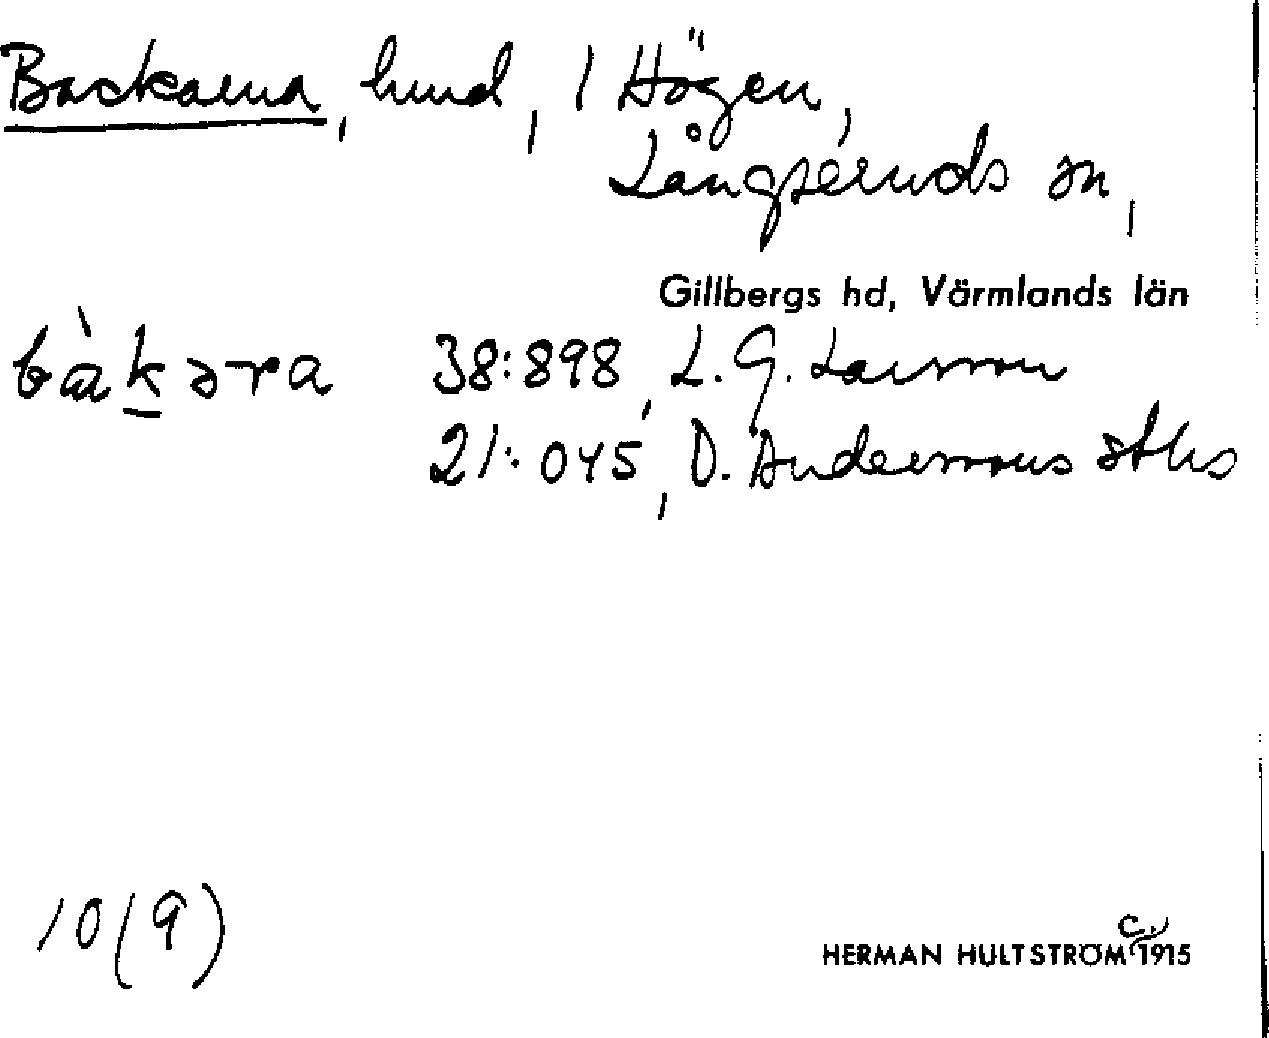 Backarna, hmd, 1 Högen,
Långseruds sn,
Gillbergs hd, Värmlands län
bàkəra 38:898, L. G. Larsson
21:045, D. Anderssons stbs
10(9)
HERMAN HULTSTRÖM C. 1915